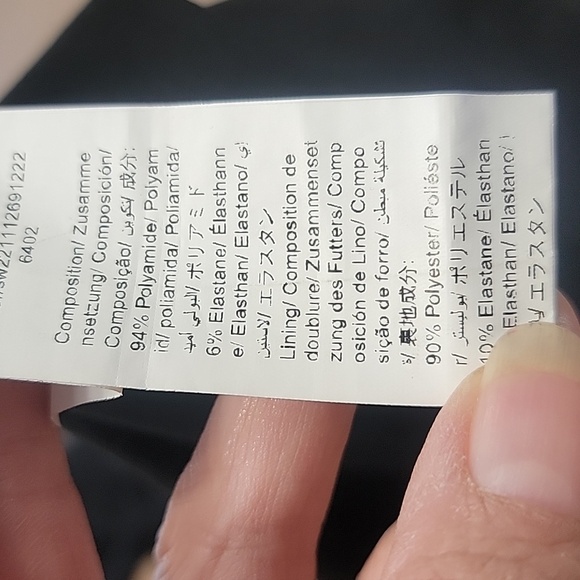 sw2211112691222
6402
Composition/ Zusamme
nsetzung/ Composición/
Composição/ تكوين/ 成分:
94% Polyamide/ Polyam
id/ poliamida/ Poliamida/
البولي أميد/ ポリアミド
6% Elastane/ Élasthann
e/ Elasthan/ Elastano/ إي
لاستين/ エラスタン
Lining/ Composition de
doublure/ Zusammenset
zung des Futters/ Comp
osición de Lino/ Compo
sição de forro/ تشكيلة مبطن
裏地成分:
90% Polyester/ Poliéste
r/ بوليستر/ ポリエステル
10% Elastane/ Élasthan
Elasthan/ Elastano/
/ エラスタン